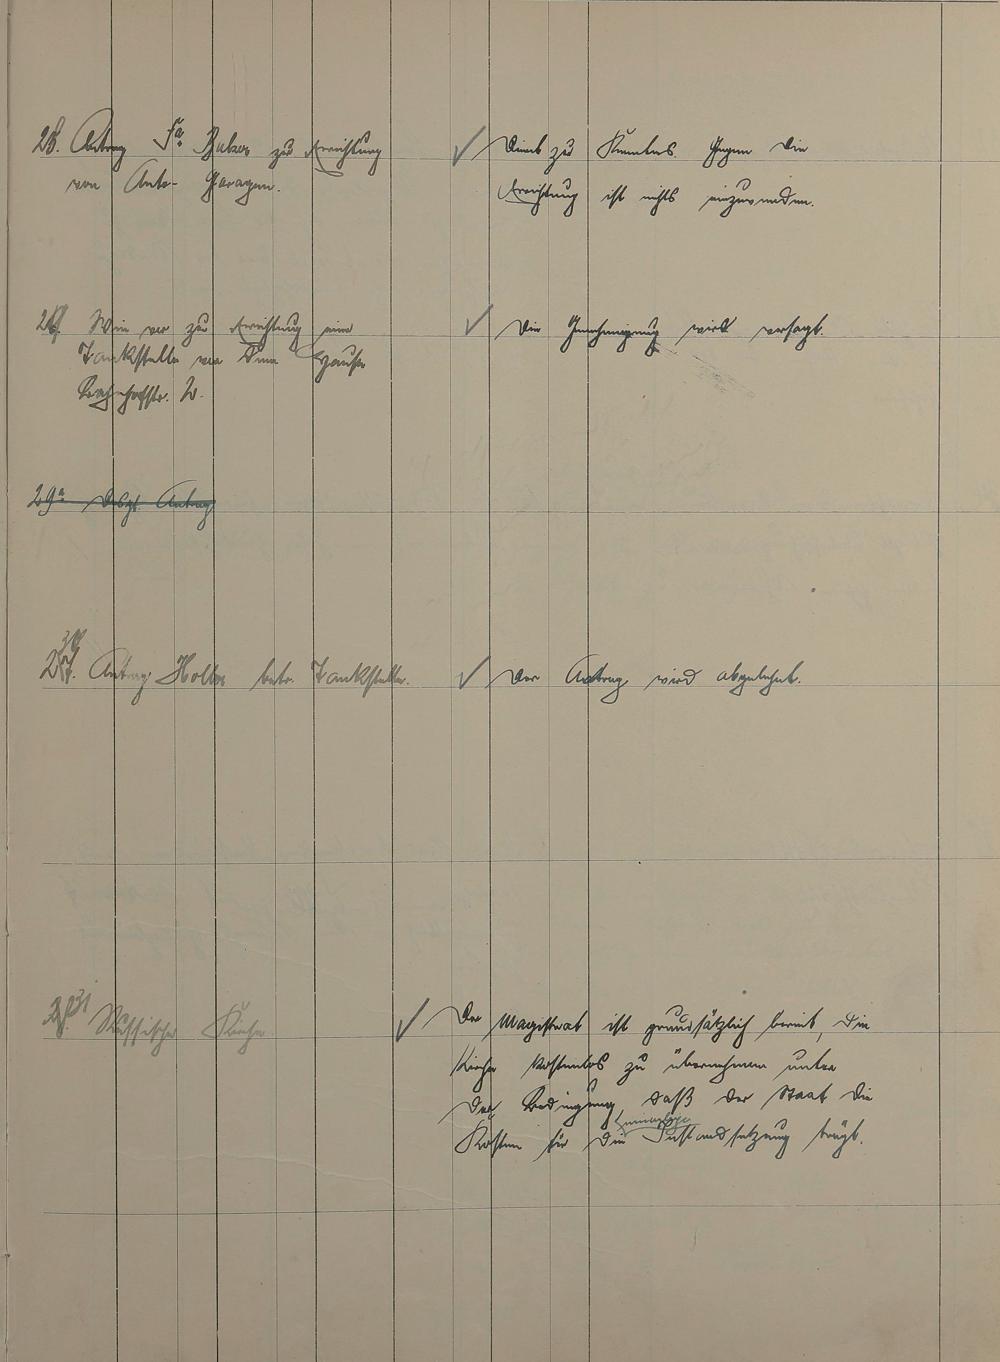 28. Antrag Fa. Balzer zur Errichtung
von Auto-Garagen.
✓ Dient zur Kenntnis. Gegen die
Errichtung ist nichts einzuwenden.
29. Wie vor zur Errichtung einer
Tankstelle vor dem Hause
Bahnhofstr. 2.
✓ Die Genehmigung wird versagt.
29a Desgl. Antrag
30. Antrag Holler betr. Tankstelle.
✓ Der Antrag wird abgelehnt.
31 Russische Kirche
✓ Der Magistrat ist grundsätzlich bereit, die
Kirche kostenlos zu übernehmen unter
der Bedingung, daß der Staat die
einmalige
Kosten für die Instandsetzung trägt.